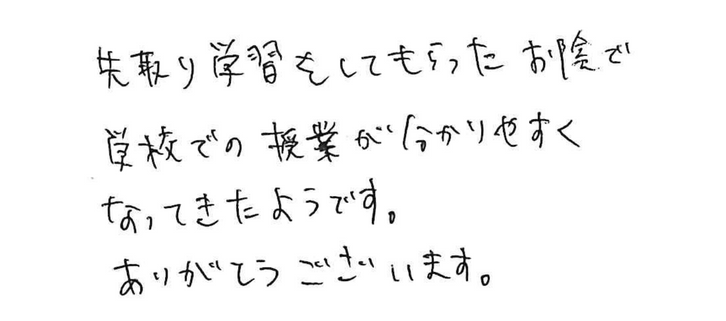 先取り学習をしてもらったお陰で
学校での授業が分かりやすく
なってきたようです。
ありがとうございます。